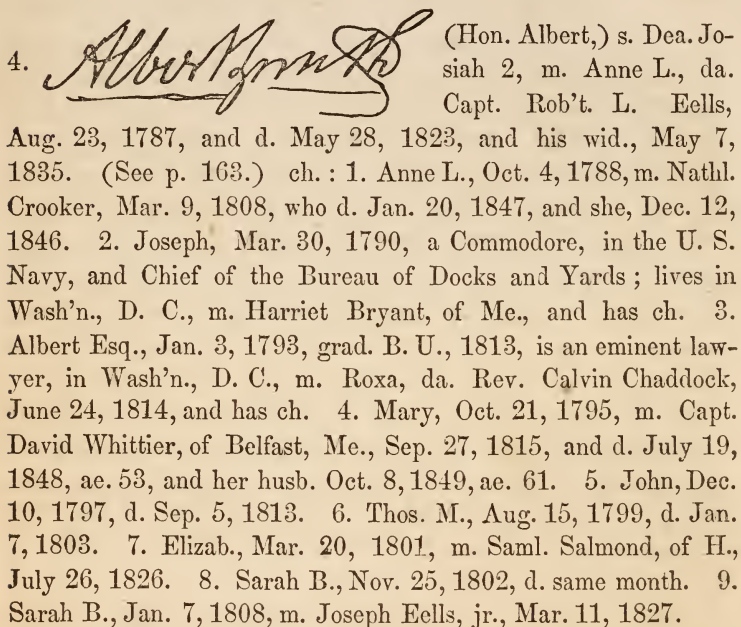 4. Albert Smith (Hon. Albert,) s. Dea. Jo-
siah 2, m. Anne L., da.
Capt. Rob't. L. Eells,
Aug. 23, 1787, and d. May 28, 1823, and his wid., May 7,
1835. (See p. 163.) ch. : 1. Anne L., Oct. 4, 1788, m. Nathl.
Crooker, Mar. 9, 1808, who d. Jan. 20, 1847, and she, Dec. 12,
1846. 2. Joseph, Mar. 30, 1790, a Commodore, in the U. S.
Navy, and Chief of the Bureau of Docks and Yards ; lives in
Wash'n., D. C., m. Harriet Bryant, of Me., and has ch. 3.
Albert Esq., Jan. 3, 1793, grad. B. U., 1813, is an eminent law-
yer, in Wash'n., D. C., m. Roxa, da. Rev. Calvin Chaddock,
June 24, 1814, and has ch. 4. Mary, Oct. 21, 1795, m. Capt.
David Whittier, of Belfast, Me., Sep. 27, 1815, and d. July 19,
1848, ae. 53, and her husb. Oct. 8, 1849, ae. 61. 5. John, Dec.
10, 1797, d. Sep. 5, 1813. 6. Thos. M., Aug. 15, 1799, d. Jan.
7, 1803. 7. Elizab., Mar. 20, 1801, m. Saml. Salmond, of H.,
July 26, 1826. 8. Sarah B., Nov. 25, 1802, d. same month. 9.
Sarah B., Jan. 7, 1808, m. Joseph Eells, jr., Mar. 11, 1827.